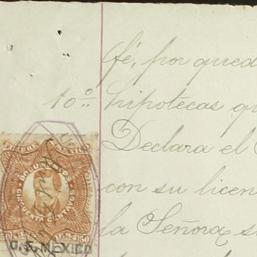 fé, por queda
10º hipotecas qu
Declara el
con su licen
la Señora s
D.F. MEXICO